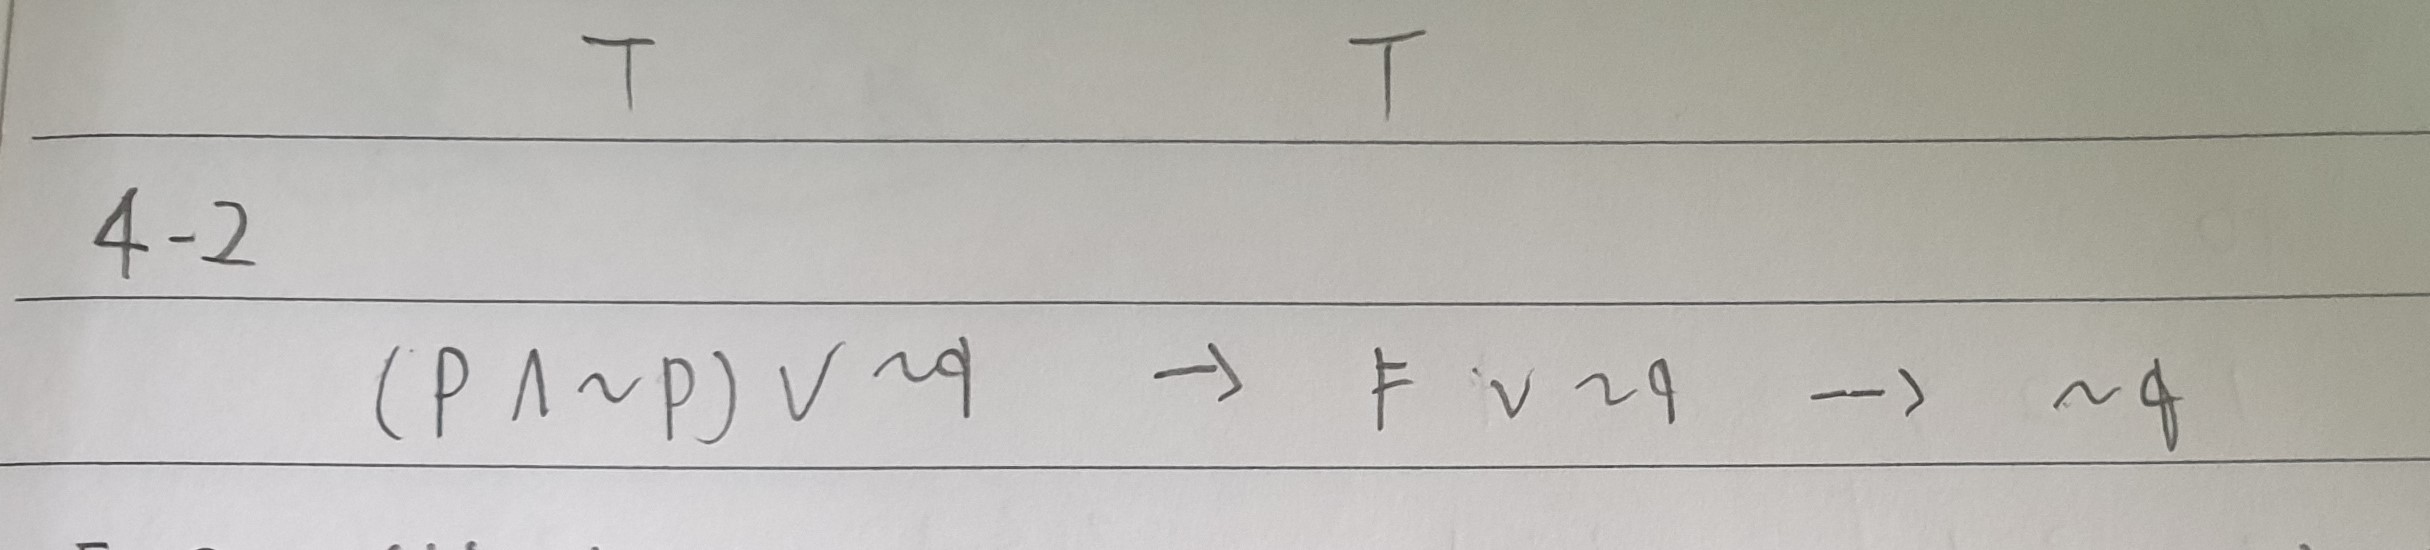 T T
4-2
(P ∧ ~P) ∨ ~q → F ∨ ~q → ~q